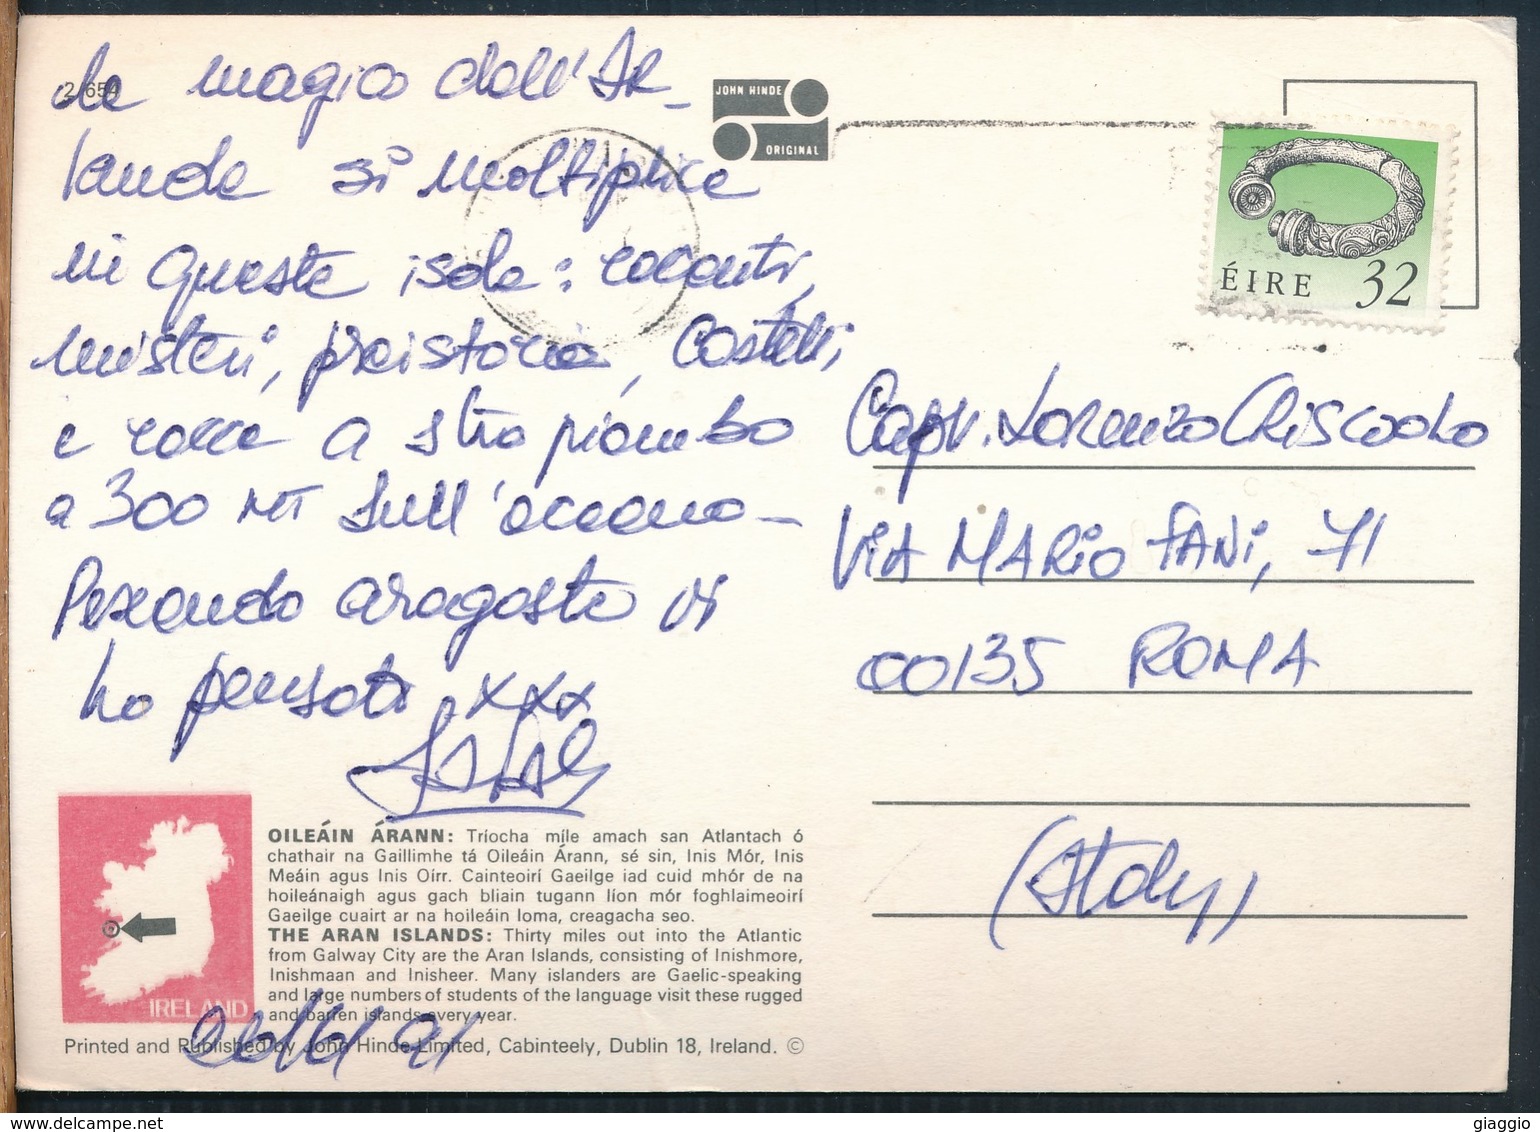 2/654
la magia dell'Ir_
landa si moltiplica
in queste isole: racconti,
misteri, preistoria, Castelli,
e rocce a strapiombo
a 300 MT sull'oceano_
Pescando aragoste vi
ho pensato xxx
JOHN HINDE
ORIGINAL
ÉIRE 32
Capv. Lorenzo CRiscuolo
ViA MARio FANi, 71
00135 ROMA
(Italy)
OILEÁIN ÁRANN: Tríocha míle amach san Atlantach ó
chathair na Gaillimhe tá Oileáin Árann, sé sin, Inis Mór, Inis
Meáin agus Inis Oírr. Cainteoirí Gaeilge iad cuid mhór de na
hoileánaigh agus gach bliain tugann líon mór foghlaimeoirí
Gaeilge cuairt ar na hoileáin loma, creagacha seo.
THE ARAN ISLANDS: Thirty miles out into the Atlantic
from Galway City are the Aran Islands, consisting of Inishmore,
Inishmaan and Inisheer. Many islanders are Gaelic-speaking
and large numbers of students of the language visit these rugged
and barren islands every year.
IRELAND
Printed and Published by John Hinde Limited, Cabinteely, Dublin 18, Ireland. ©
delcampe.net
giaggio